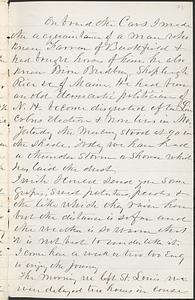 On board the Cars I made
the acquaintance of a man who
knew Warren of Buckfield &
had bought horses of him. he also
knew Bro Bradbury, Stephleigh
Rice of Maine. He had been
an old Democratic politician of
N. H. become disgusted of the
Yesterday the Mercury stood at 90 in
the shade. Today we have had
a thunder storm & a shower which
has laid the dust.
I wish I could send you some
Grapes, Sweet potatoes, peaches &
the like which they raise here
but the distance is so far and
the weather is so warm that
it is not best to undertake it.
I came here a week or two too long
to enjoy the journey.
The morning we left St. Louis we
were delayed two hours in conse